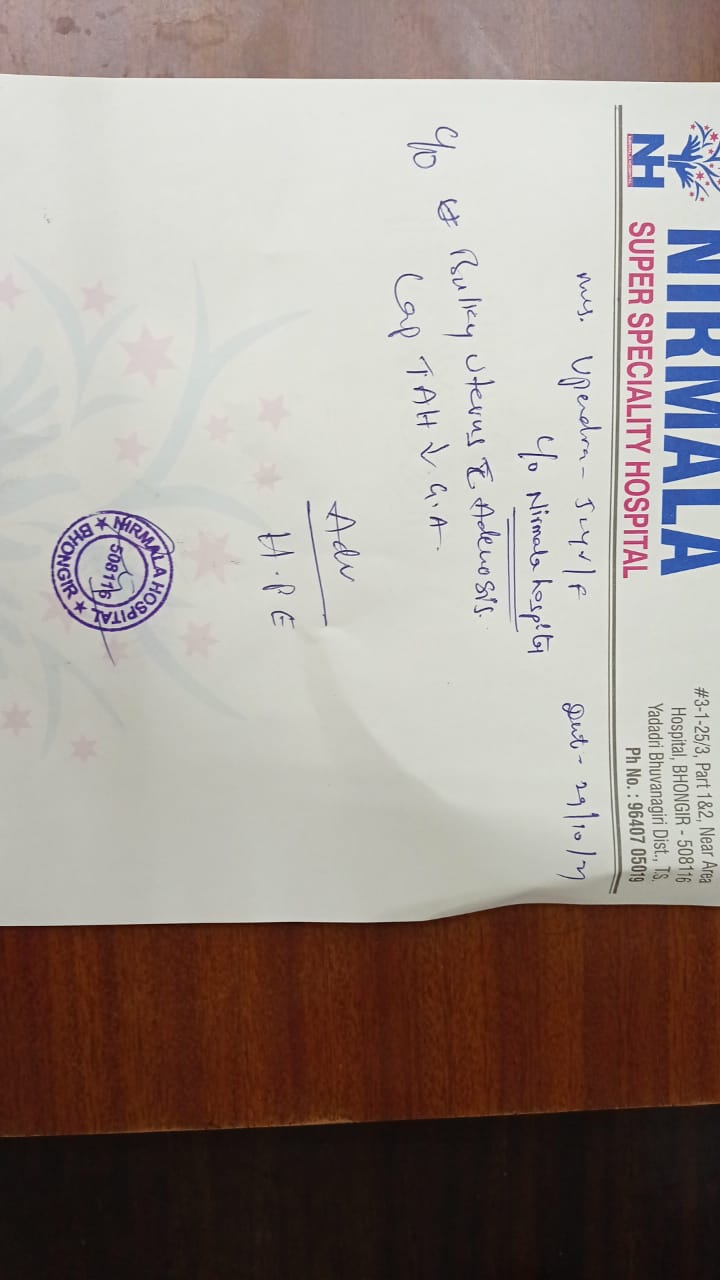 NH
NIRMALA
SUPER SPECIALITY HOSPITAL
#3-1-25/3, Part 1&2, Near Area
Hospital, BHONGIR - 508116
Yadadri Bhuvanagiri Dist., T.S.
Ph No. : 96407 05019
Mrs. Upendra -
Dat - 29/10/21
C/o Nirmala hospital
C/o Bulky uterus c̄ Adenosis.
Lap TAH
G.A.
Adv
H.P.E
NIRMALA HOSPITAL
★ BHONGIR ★
508116